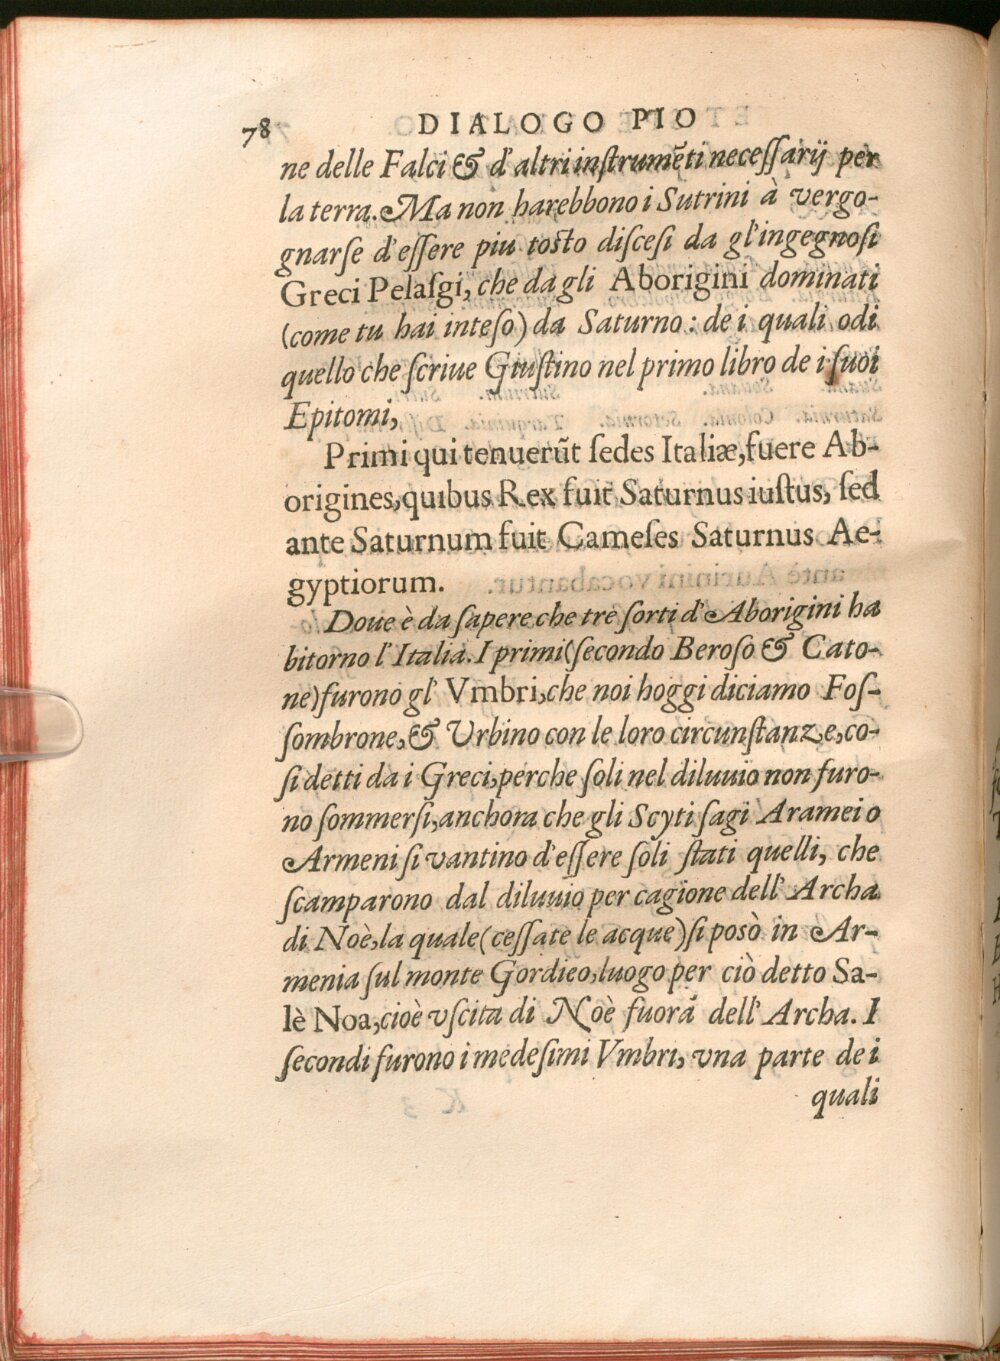 78 DIALOGO PIO
ne delle Falci & d'altri inſtrumēti neceſſarij per
la terra. Ma non harebbono i Sutrini à vergo-
gnarſe d'eſſere piu toſto diſceſi da gl'ingegnoſi
Greci Pelaſgi, che da gli Aborigini dominati
(come tu hai inteſo) da Saturno: de i quali odi
quello che ſcriue Giuſtino nel primo libro de i ſuoi
Epitomi,
Primi qui tenuerūt ſedes Italiæ, fuere Ab-
origines, quibus Rex fuit Saturnus iuſtus, ſed
ante Saturnum fuit Cameſes Saturnus Ae-
gyptiorum.
Doue è da ſapere che tre ſorti d'Aborigini ha
bitorno l'Italia. I primi (ſecondo Beroſo & Cato-
ne) furono gl' Vmbri, che noi hoggi diciamo Foſ-
ſombrone, & Urbino con le loro circunſtanze, co-
ſi detti da i Greci, perche ſoli nel diluuio non furo-
no ſommerſi, anchora che gli Scyti ſagi Aramei o
Armeni ſi vantino d'eſſere ſoli ſtati quelli, che
ſcamparono dal diluuio per cagione dell' Archa
di Noè, la quale (ceſſate le acque) ſi posò in Ar-
menia ſul monte Gordieo, luogo per ciò detto Sa-
lè Noa, cioè vſcita di Noè fuora dell' Archa. I
ſecondi furono i medeſimi Vmbri, vna parte de i
quali